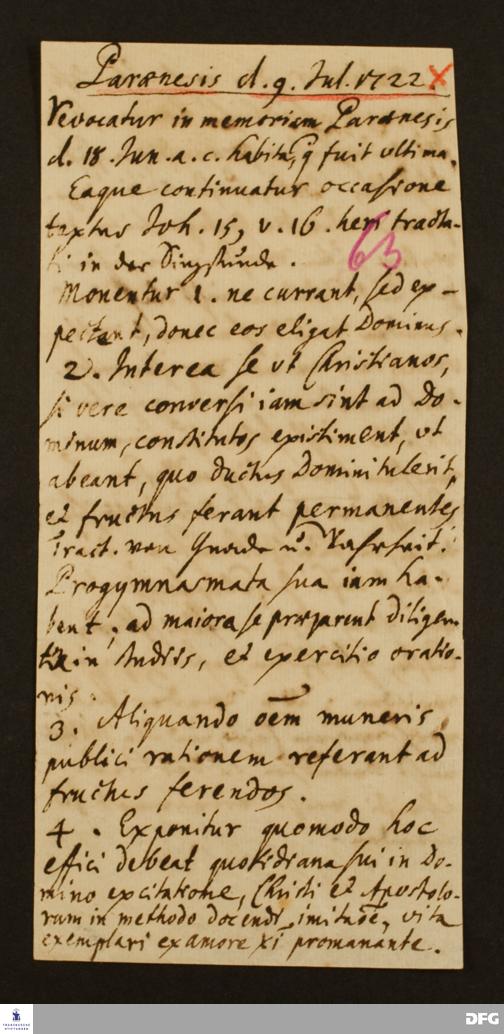 Parænesis d. 9. Jul. 1722.
Revocatur in memoriam Parænesis
d. 18. Jun. a. c. habita, q̃ fuit ultima.
Eaque continuatur occasione
textus Joh. 15, v. 16. heri tracta-
ti in der Singstunde.
63
Monentur 1. ne currant, sed ex-
pectent, donec eos eligat Dominus.
2. Interea se ut Christianos,
si vere conversi iam sint ad Do-
minum, constitutos existiment, ut
abeant, quo ductus Domini tulerit,
et fructus ferant permanentes
Tract. von Gnade u. Wahrheit.
Progymnasmata sua iam ha-
bent; ad maiora se præparent diligen-
in studiis, et exercitio oratio-
nis.
3. Aliquando oem̄ muneris
publici rationem referant ad
fructus ferendos.
4. Exponitur quomodo hoc
effici debeat quotidiana sui in Do-
mino excitatione, Christi et Apostolo-
rum in methodo docendi imitaōe, vita
exemplari ex amore Xi promanante.
FRANCKESCHE STIFTUNGEN
DFG